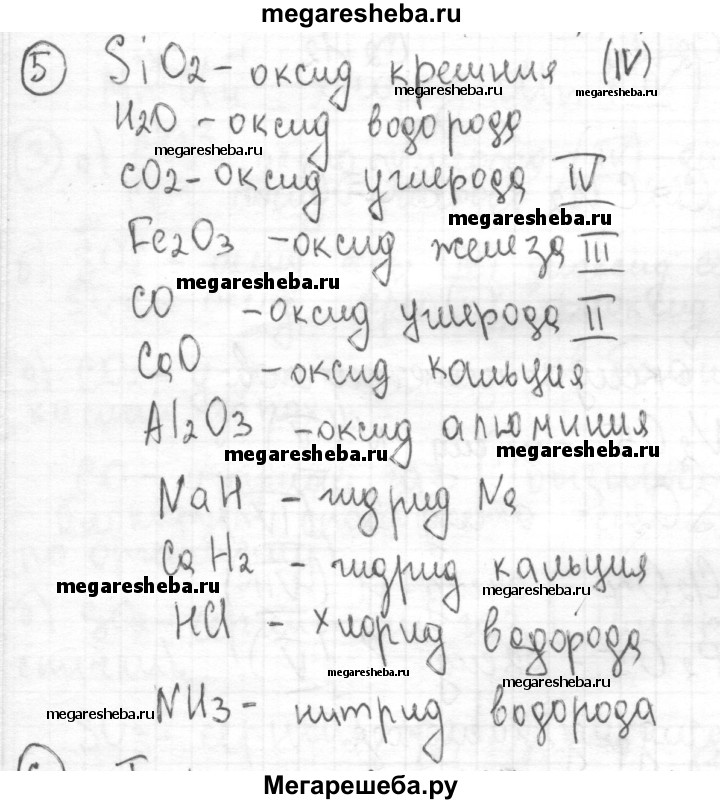 megaresheba.ru
5 SiO2 - оксид кремния (IV)
megaresheba.ru megaresheba.ru
H2O - оксид водорода
megaresheba.ru
CO2 - оксид углерода IV
megaresheba.ru
Fe2O3 - оксид железа III
megaresheba.ru
CO - оксид углерода II
CaO - оксид кальция
Al2O3 - оксид алюминия
megaresheba.ru megaresheba.ru
NaH - гидрид Na
CaH2 - гидрид кальция
megaresheba.ru megaresheba.ru
HCl - хлорид водорода
megaresheba.ru megaresheba.ru
NH3 - нитрид водорода
megaresheba.ru
Мегарешеба.ру